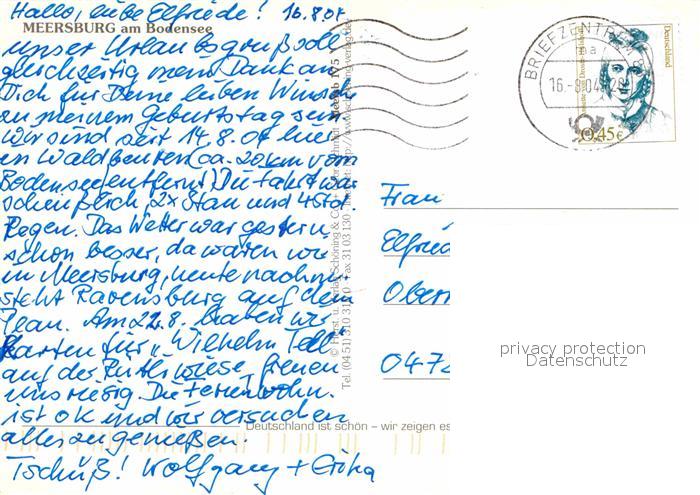 Hallo, liebe Elfriede! 16.8.04
MEERSBURG am Bodensee
unser Urlaubsgruß soll
gleichzeitig mein Dank an
Dich für Deine lieben Wünsche
zu meinem Geburtstag sein
Wir sind seit 14.8.04 hier
in Waldbeuren (ca. 20 km vom
Bodensee entfernt). Die Fahrt war
scheußlich, 2x Stau und 4 Std.
Regen. Das Wetter war gestern
schon besser, da waren wir
in Meersburg, heute nachm.
steht Ravensburg auf dem
Plan. Am 22.8. haben wir
Karten für "Wilhelm Tell"
auf der Rütliwiese, freuen
uns riesig. Die Ferienwohn.
ist ok und wir versuchen
alles zu genießen.
Tschüß! Wolfgang + Erika
Tel. (04 51) 31 03 10 · Fax 31 03 130
BRIEFZENTRUM
16.-8.04
Deutschland
0,45€
Frau
Elfried
Obern
0472
privacy protection
Datenschutz
Deutschland ist schön – wir zeigen es